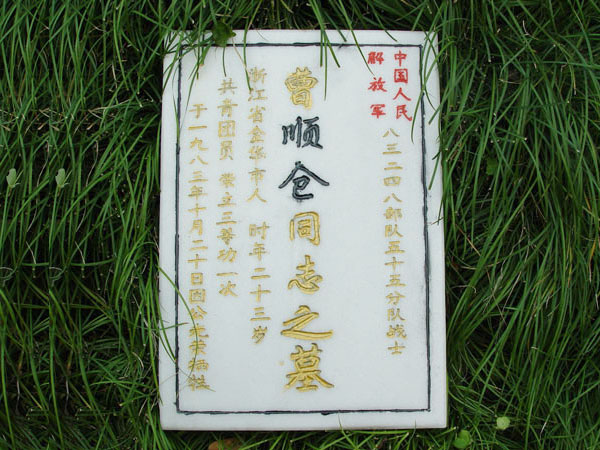 中国人民
解放军
八三二四八部队五十五分队战士
曹顺仓同志之墓
浙江省金华市人 时年二十三岁
共青团员 荣立三等功一次
于一九八三年十月二十日因公光荣牺牲